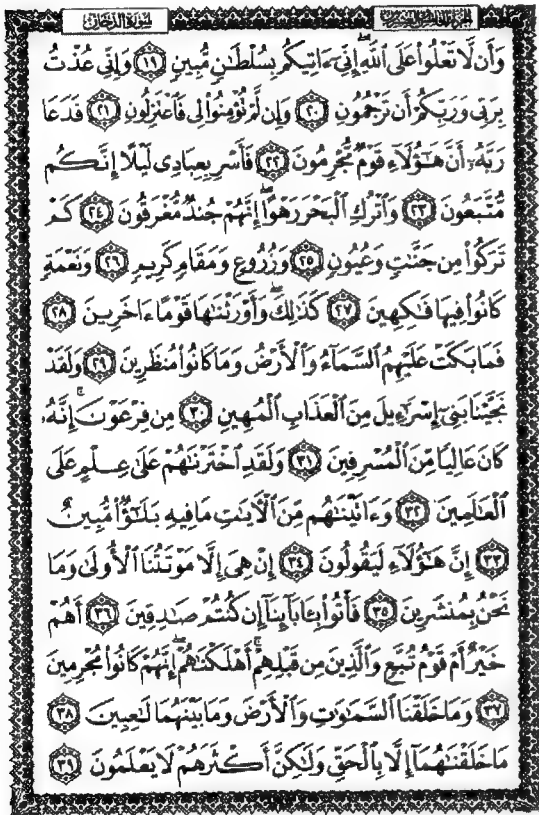 سورة الدخان
وَأَن لَّا تَعْلُوا۟ عَلَى ٱللَّهِ ۖ إِنِّىٓ ءَاتِيكُم بِسُلْطَـٰنٍ مُّبِينٍ ﴿١٩﴾ وَإِنِّى عُذْتُ
بِرَبِّى وَرَبِّكُمْ أَن تَرْجُمُونِ ﴿٢٠﴾ وَإِن لَّمْ تُؤْمِنُوا۟ لِى فَٱعْتَزِلُونِ ﴿٢١﴾ فَدَعَا
رَبَّهُۥٓ أَنَّ هَـٰٓؤُلَآءِ قَوْمٌ مُّجْرِمُونَ ﴿٢٢﴾ فَأَسْرِ بِعِبَادِى لَيْلًا إِنَّكُم
مُّتَّبَعُونَ ﴿٢٣﴾ وَٱتْرُكِ ٱلْبَحْرَ رَهْوًا ۖ إِنَّهُمْ جُندٌ مُّغْرَقُونَ ﴿٢٤﴾ كَمْ
تَرَكُوا۟ مِن جَنَّـٰتٍ وَعُيُونٍ ﴿٢٥﴾ وَزُرُوعٍ وَمَقَامٍ كَرِيمٍ ﴿٢٦﴾ وَنَعْمَةٍ
كَانُوا۟ فِيهَا فَـٰكِهِينَ ﴿٢٧﴾ كَذَٰلِكَ ۖ وَأَوْرَثْنَـٰهَا قَوْمًا ءَاخَرِينَ ﴿٢٨﴾
فَمَا بَكَتْ عَلَيْهِمُ ٱلسَّمَآءُ وَٱلْأَرْضُ وَمَا كَانُوا۟ مُنظَرِينَ ﴿٢٩﴾ وَلَقَدْ
نَجَّيْنَا بَنِىٓ إِسْرَٰٓءِيلَ مِنَ ٱلْعَذَابِ ٱلْمُهِينِ ﴿٣٠﴾ مِن فِرْعَوْنَ ۚ إِنَّهُۥ
كَانَ عَالِيًا مِّنَ ٱلْمُسْرِفِينَ ﴿٣١﴾ وَلَقَدِ ٱخْتَرْنَـٰهُمْ عَلَىٰ عِلْمٍ عَلَى
ٱلْعَـٰلَمِينَ ﴿٣٢﴾ وَءَاتَيْنَـٰهُم مِّنَ ٱلْـَٔايَـٰتِ مَا فِيهِ بَلَـٰٓؤٌا۟ مُّبِينٌ
﴿٣٣﴾ إِنَّ هَـٰٓؤُلَآءِ لَيَقُولُونَ ﴿٣٤﴾ إِنْ هِىَ إِلَّا مَوْتَتُنَا ٱلْأُولَىٰ وَمَا
نَحْنُ بِمُنشَرِينَ ﴿٣٥﴾ فَأْتُوا۟ بِـَٔابَآئِنَآ إِن كُنتُمْ صَـٰدِقِينَ ﴿٣٦﴾ أَهُمْ
خَيْرٌ أَمْ قَوْمُ تُبَّعٍ وَٱلَّذِينَ مِن قَبْلِهِمْ ۚ أَهْلَكْنَـٰهُمْ ۖ إِنَّهُمْ كَانُوا۟ مُجْرِمِينَ
﴿٣٧﴾ وَمَا خَلَقْنَا ٱلسَّمَـٰوَٰتِ وَٱلْأَرْضَ وَمَا بَيْنَهُمَا لَـٰعِبِينَ ﴿٣٨﴾
مَا خَلَقْنَـٰهُمَآ إِلَّا بِٱلْحَقِّ وَلَـٰكِنَّ أَكْثَرَهُمْ لَا يَعْلَمُونَ ﴿٣٩﴾